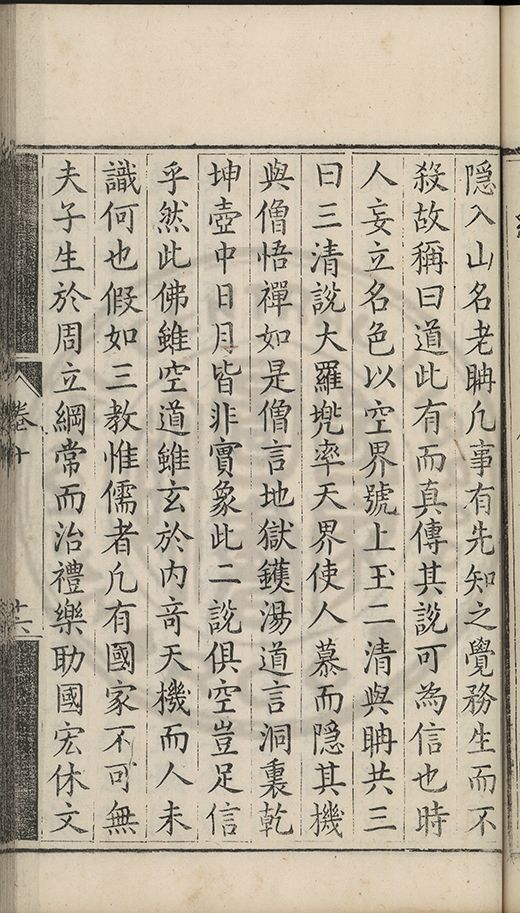 隱入山名老聃凡事有先知之覺務生而不
殺故稱曰道此有而真傳其說可為信也時
人妄立名色以空界號上玉二清與聃共三
曰三清說大羅兠率天界使人慕而隱其機
與僧悟禪如是僧言地獄鑊湯道言洞裏乾
坤壺中日月皆非實象此二說俱空豈足信
乎然此佛雖空道雖玄於內竒天機而人未
識何也假如三教惟儒者凢有國家不可無
夫子生於周立綱常而治禮樂助國宏休文
卷十
十六